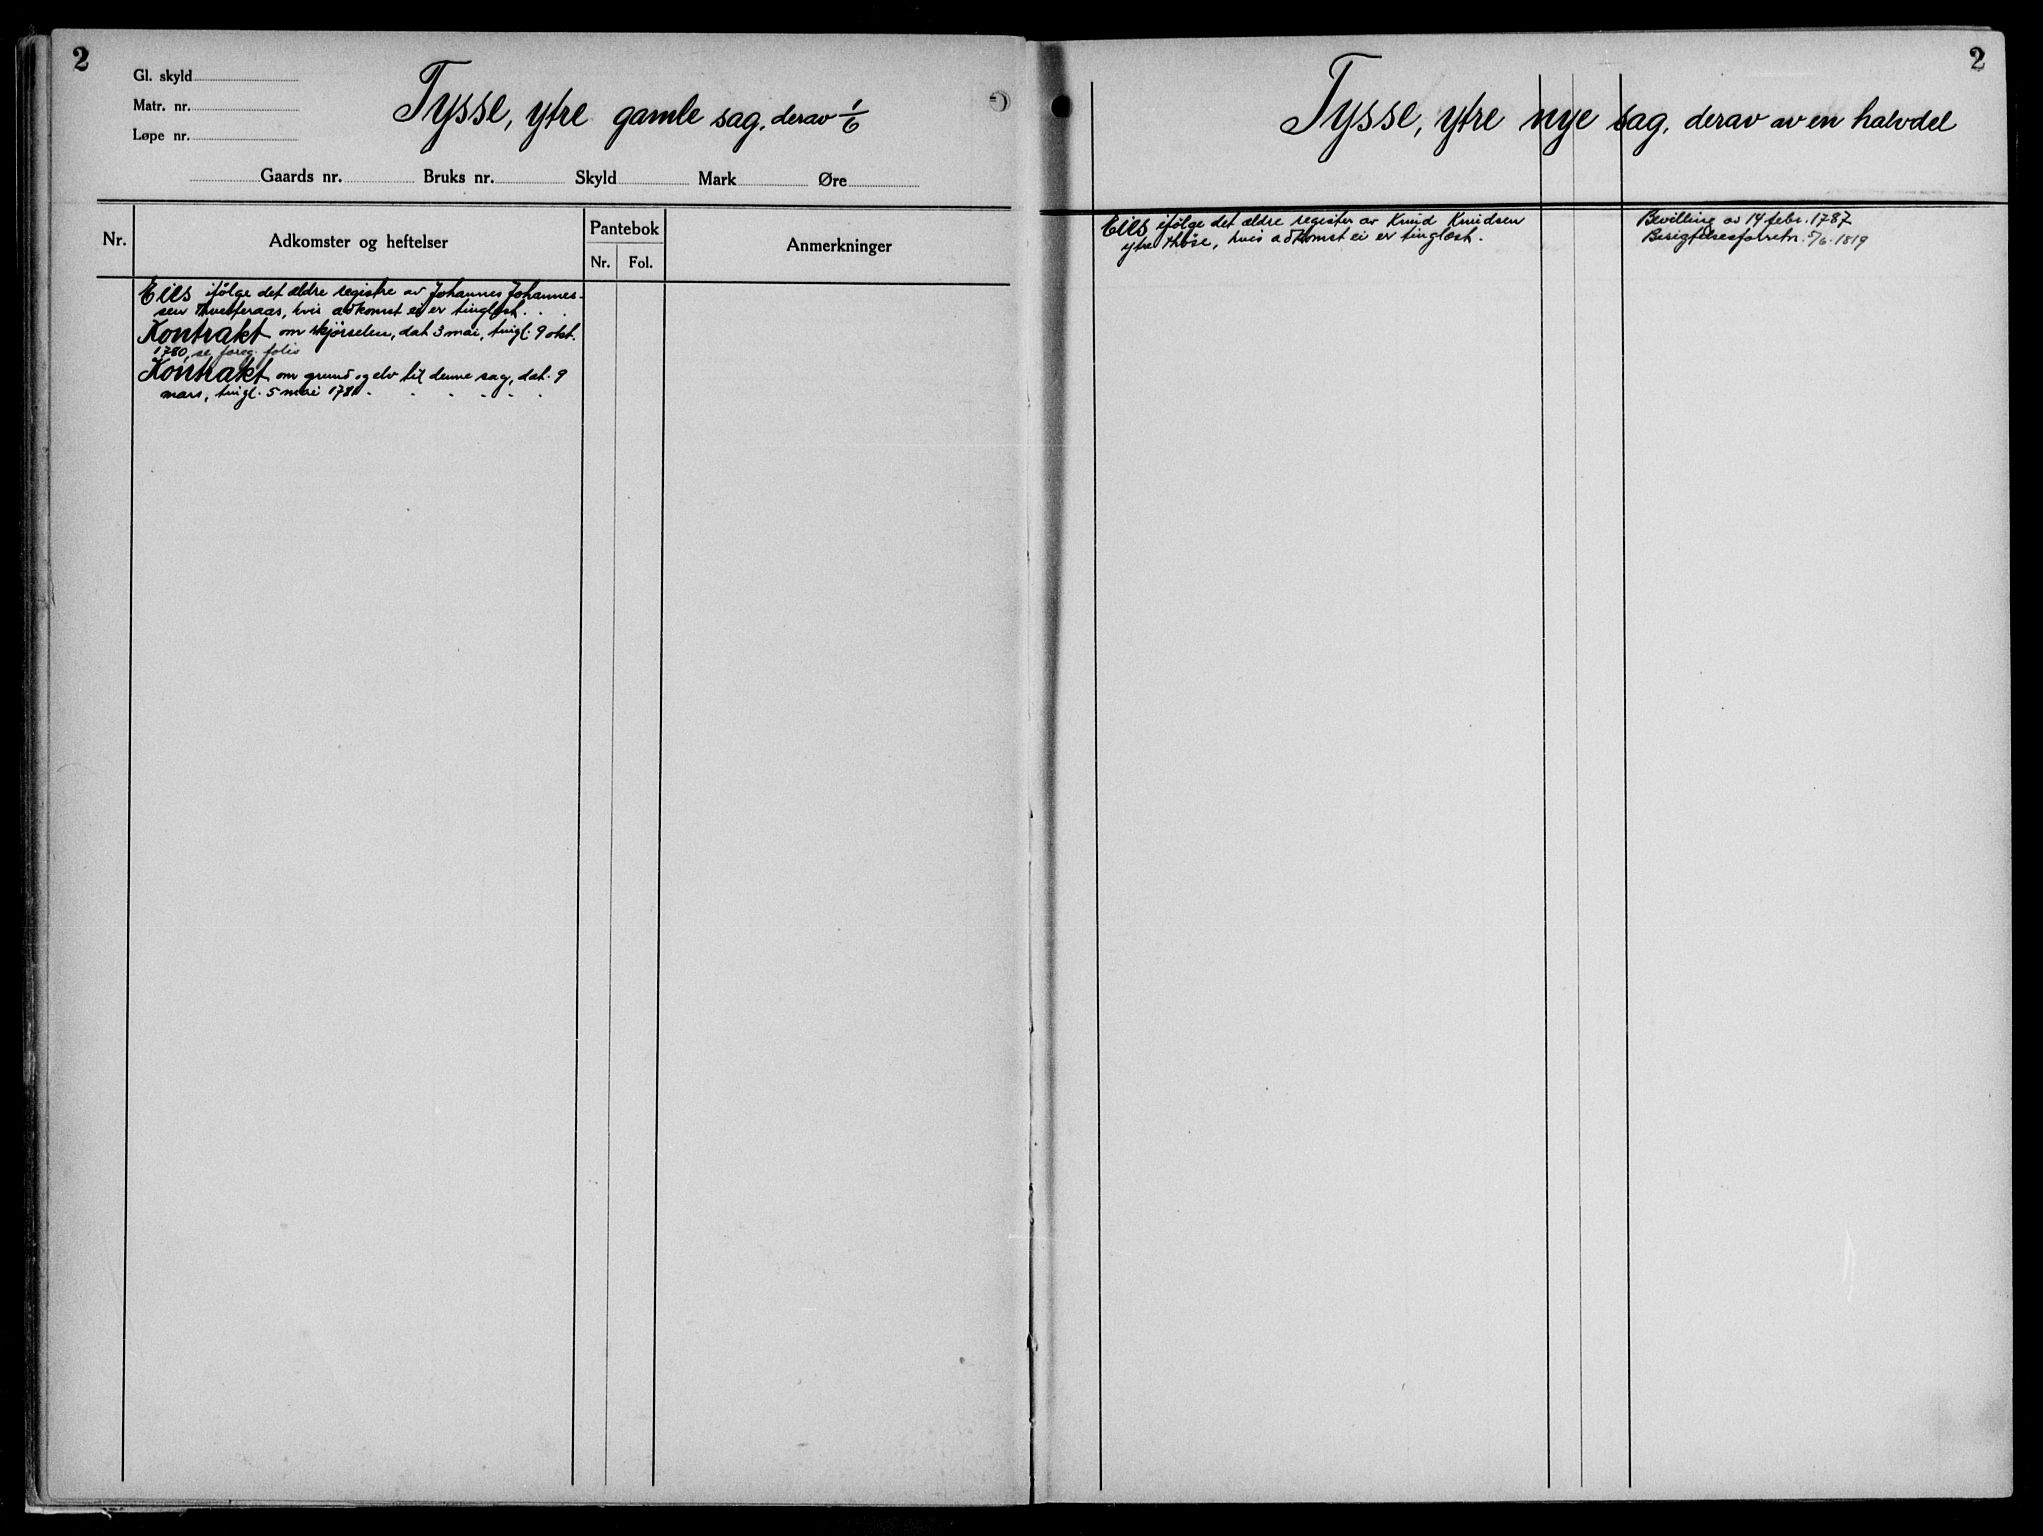 2
Gl. skyld
Matr. nr.
Løpe nr.
Tysse, ytre gamle sag, derav 1/6
Gaards nr. Bruks nr. Skyld Mark Øre
Nr. Adkomster og heftelser Pantebok Anmerkninger
Nr. Fol.
Eies ifölge det ældre registre av Johannes Johannes-
sen Tvetteraas, hvis adkomst ei er tinglæst . . .
Kontrakt om skjörselen, dat 3 mai, tingl. 9 okt.
1780, se foreg. folio
Kontrakt om grund og elv til denne sag, dat. 9
mars, tingl. 5 mai 1781 . . . . . .
2
Tysse, ytre nye sag, derav av en halvdel
Eies ifölge det ældre register av Knud Knudsen
ytre , hvis adkomst ei er tinglæst.
Bevilling av 14 febr. 1787
Besigtelsesforretn. 5/6. 1819